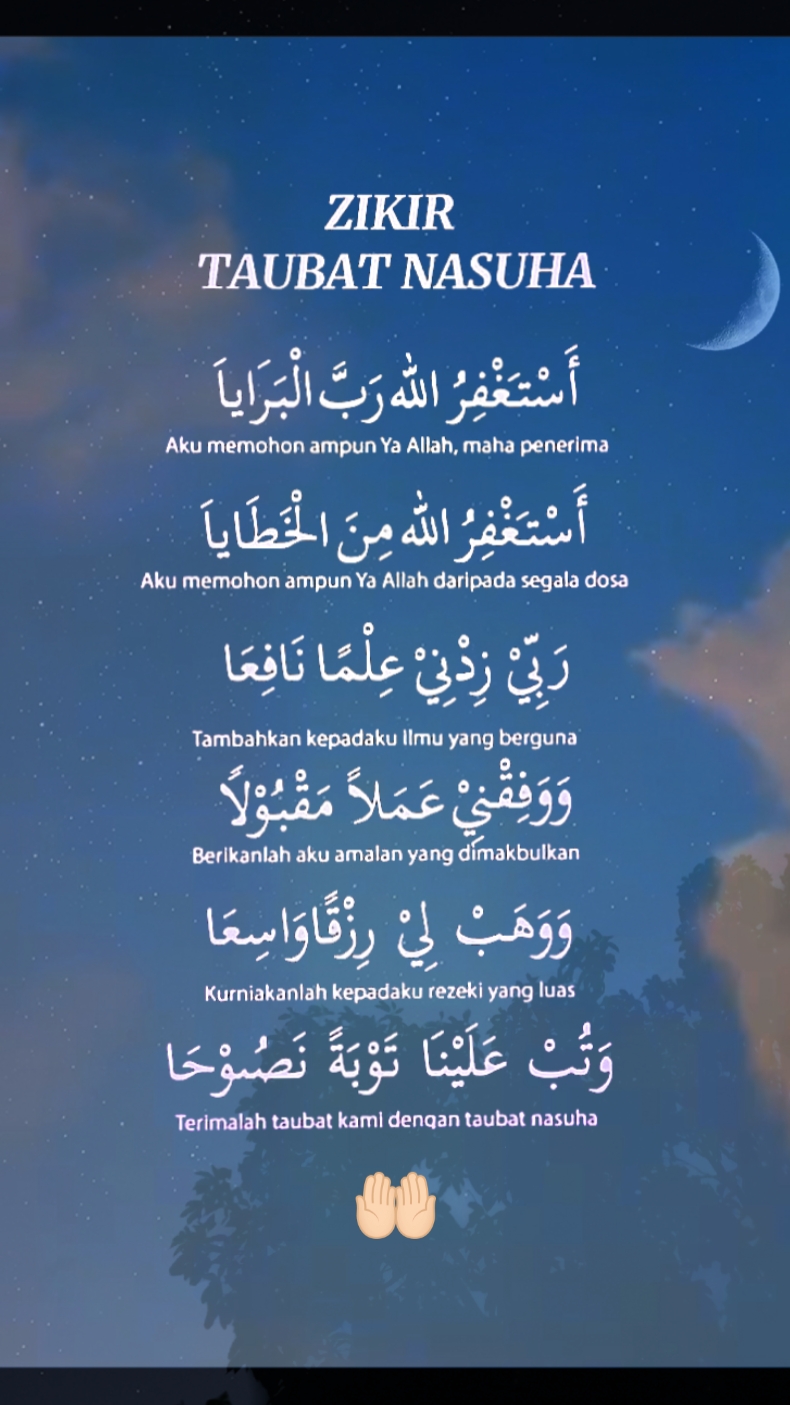 ZIKIR
TAUBAT NASUHA
أَسْتَغْفِرُ الله رَبَّ الْبَرَاياَ
Aku memohon ampun Ya Allah, maha penerima
أَسْتَغْفِرُ الله مِنَ الْخَطَاياَ
Aku memohon ampun Ya Allah daripada segala dosa
رَبِّيْ زِدْنِيْ عِلْمًا نَافِعَا
Tambahkan kepadaku ilmu yang berguna
وَوَفِقْنِيْ عَمَلاً مَقْبُوْلاً
Berikanlah aku amalan yang dimakbulkan
وَوَهَبْ لِيْ رِزْقًاوَاسِعَا
Kurniakanlah kepadaku rezeki yang luas
وَتُبْ عَلَيْنَا تَوْبَةً نَصُوْحَا
Terimalah taubat kami dengan taubat nasuha